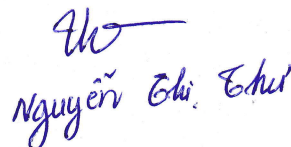 Nguyễn Thị Thư